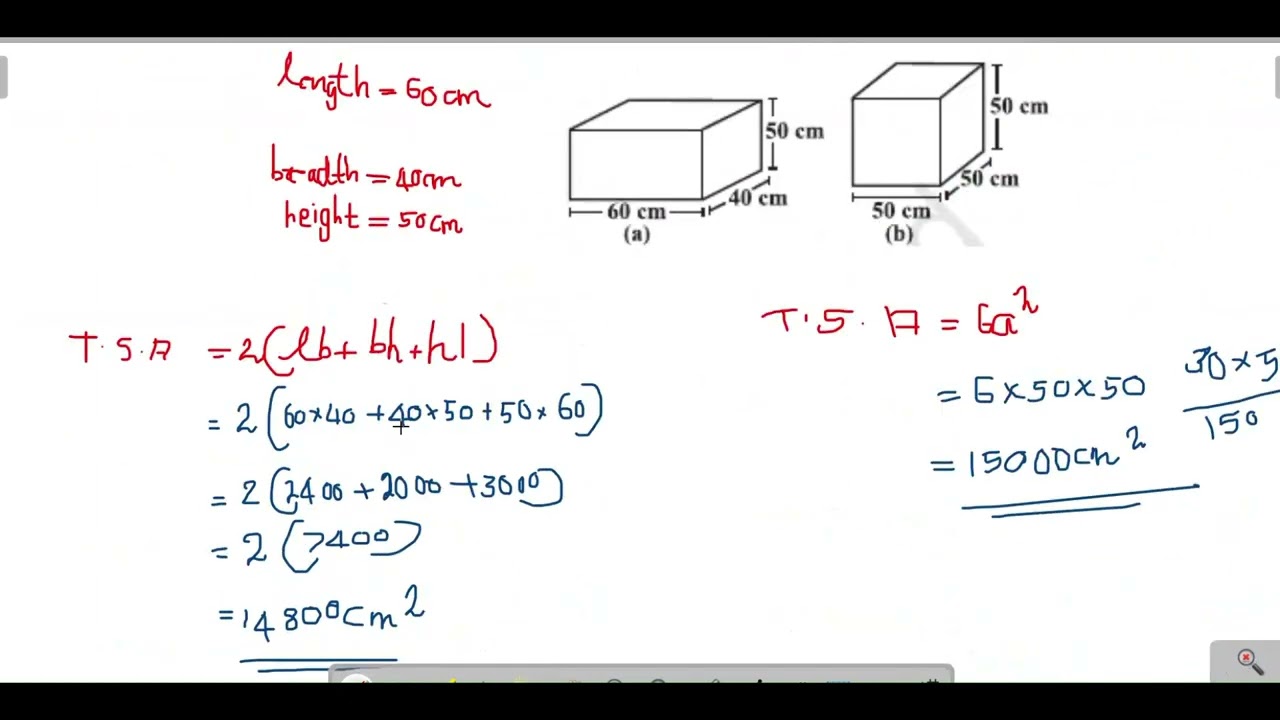 length = 60 cm
breadth = 40cm
height = 50cm
50 cm
40 cm
60 cm
(a)
50 cm
50 cm
50 cm
(b)
T.S.A = 2(lb + bh + hl)
= 2(60×40 + 40×50 + 50×60)
= 2(2400 + 2000 + 3000)
= 2(7400)
= 14800cm²
T.S.A = 6a²
= 6×50×50
= 15000cm²
30×5
150